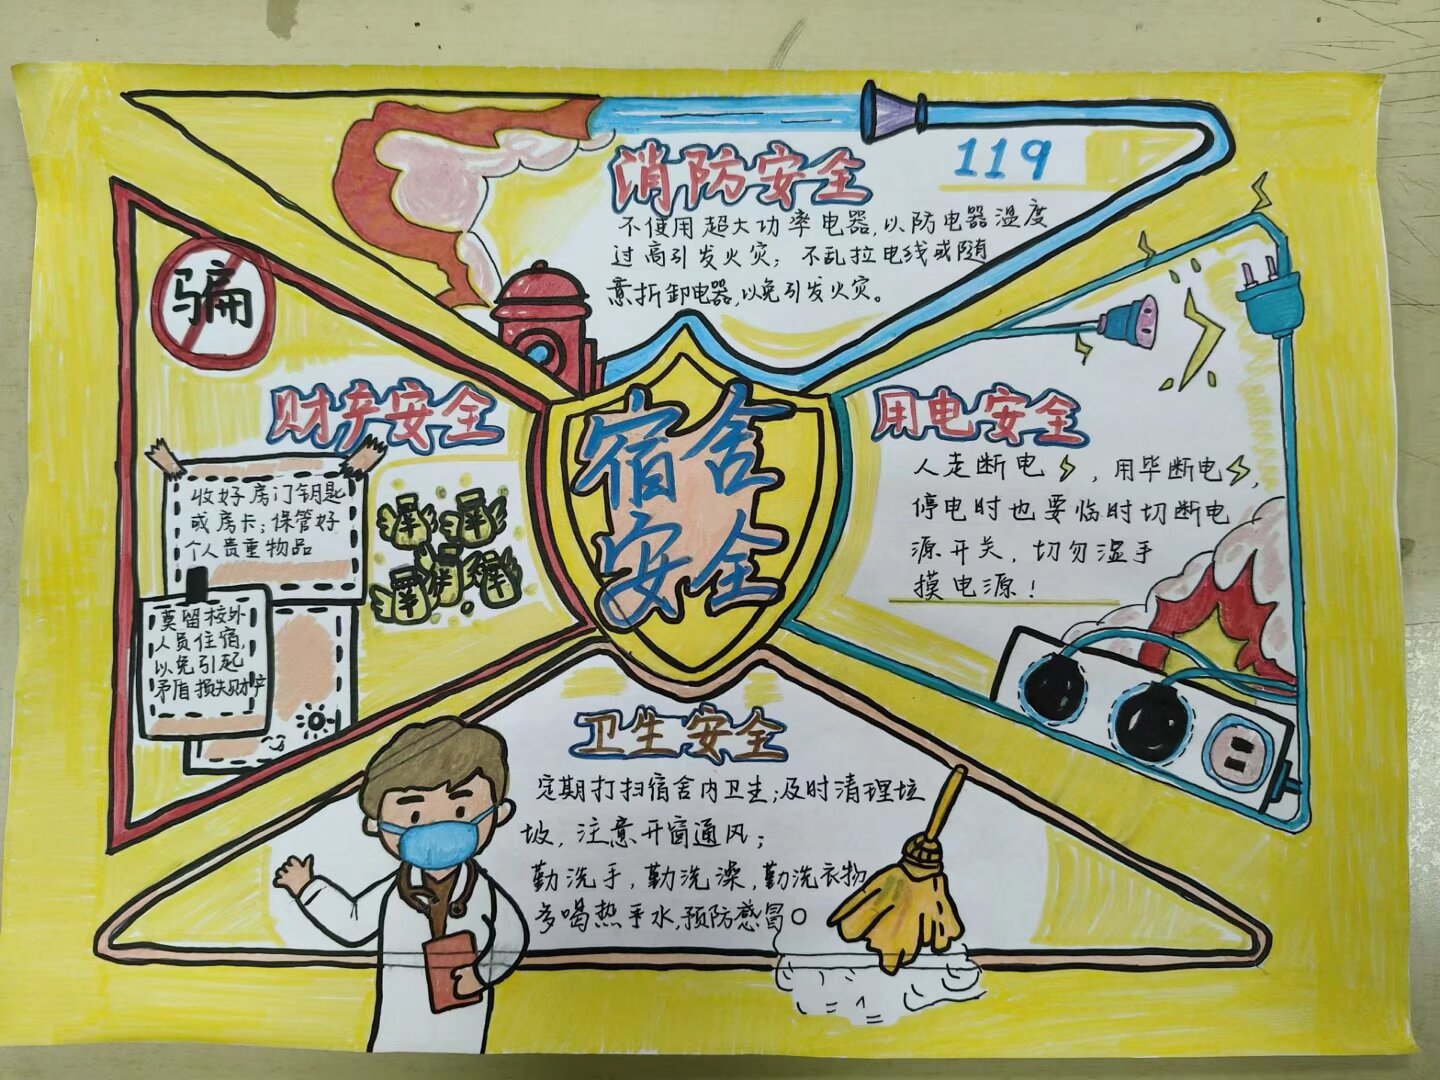 消防安全
119
不使用超大功率电器,以防电器温度
过高引发火灾；不乱拉电线或随
意拆卸电器,以免引发火灾。
骗
财产安全
收好房门钥匙
或房卡；保管好
个人贵重物品
莫留校外
人员住宿,
以免引起
矛盾损失财产
宿舍
安全
用电安全
人走断电，用毕断电，
停电时也要临时切断电
源开关，切勿湿手
摸电源！
卫生安全
定期打扫宿舍内卫生；及时清理垃
圾，注意开窗通风；
勤洗手，勤洗澡，勤洗衣物
多喝热乎水,预防感冒。